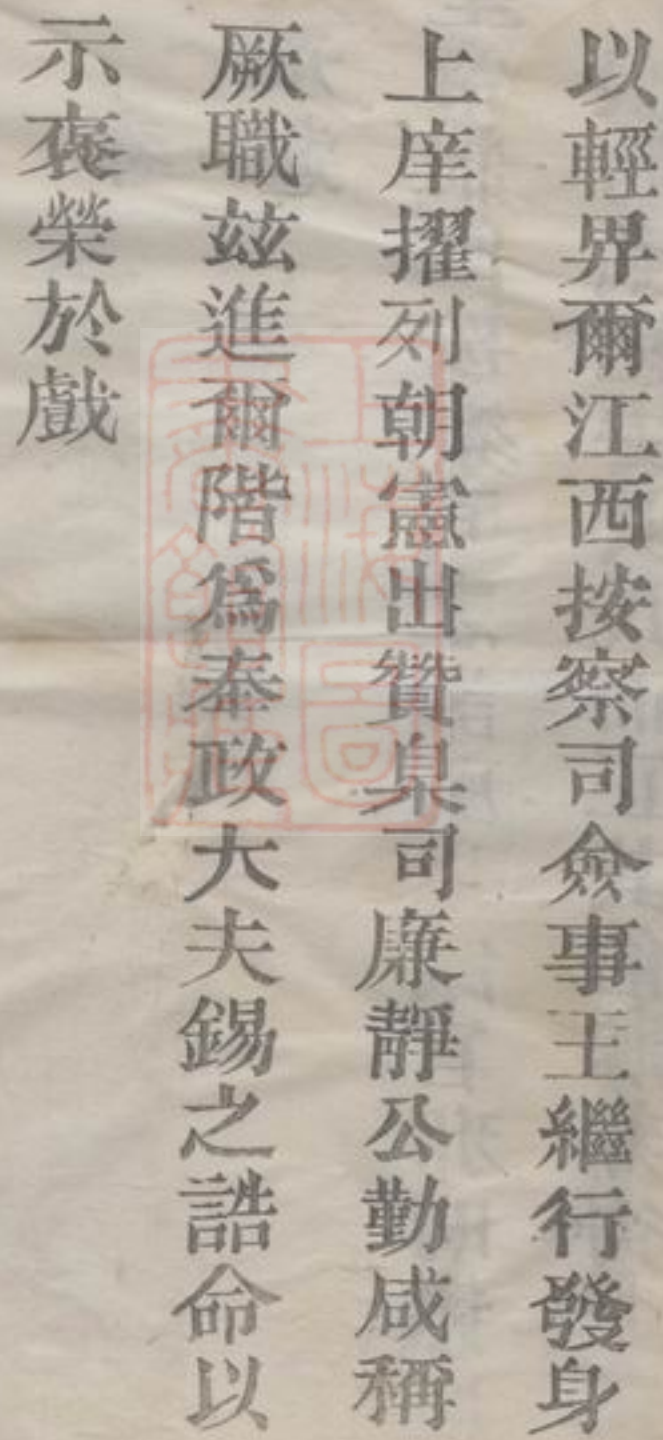 以輕畀爾江西按察司僉事王繼行發身
上庠擢列朝憲出贊臬司廉靜公勤咸稱
厥職玆進爾階爲奉政大夫錫之誥命以
示褒榮於戲